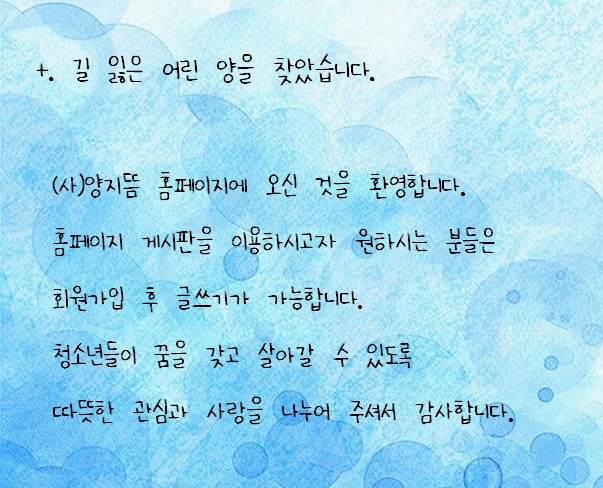 +. 길 잃은 어린 양을 찾았습니다.
(사)양지뜸 홈페이지에 오신 것을 환영합니다.
홈페이지 게시판을 이용하시고자 원하시는 분들은
회원가입 후 글쓰기가 가능합니다.
청소년들이 꿈을 갖고 살아갈 수 있도록
따뜻한 관심과 사랑을 나누어 주셔서 감사합니다.